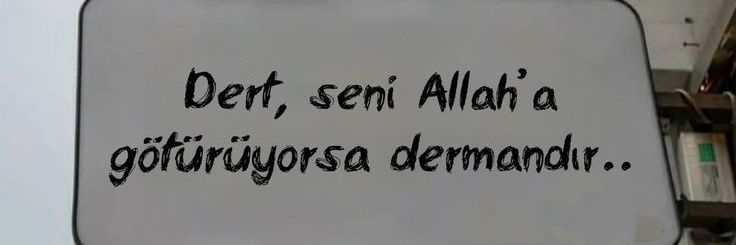 Dert, seni Allah'a
götürüyorsa dermandır..